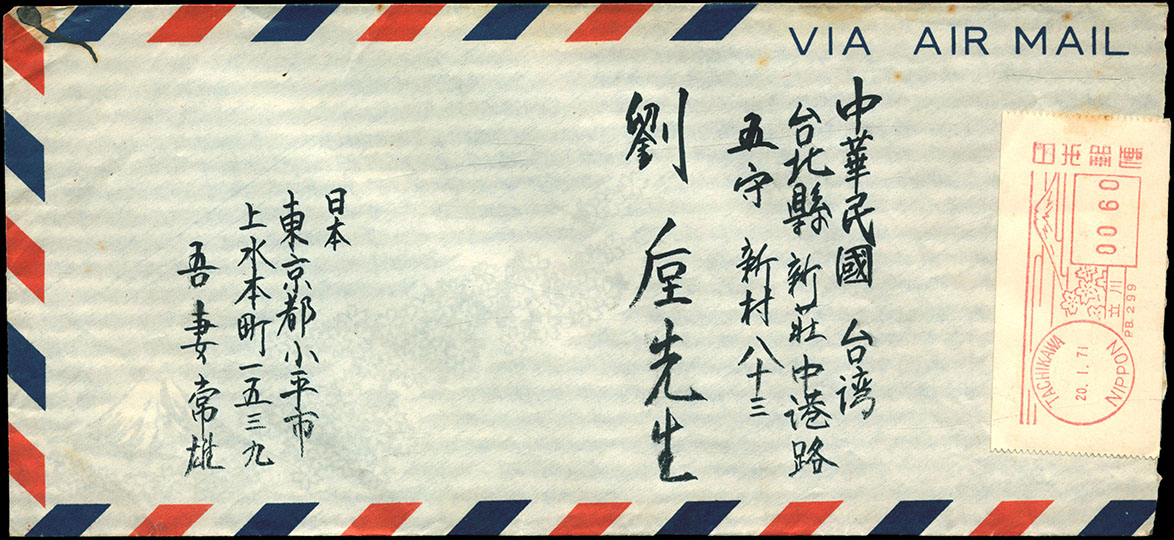 VIA AIR MAIL
中華民國 台湾
台北縣 新莊中港路
五守 新村 八十三
劉 先生
日本
東京都小平市
上水本町一五三九
吾妻常雄
日本郵便
0060
立川
PB.299
TACHIKAWA
20.1.71
NIPPON